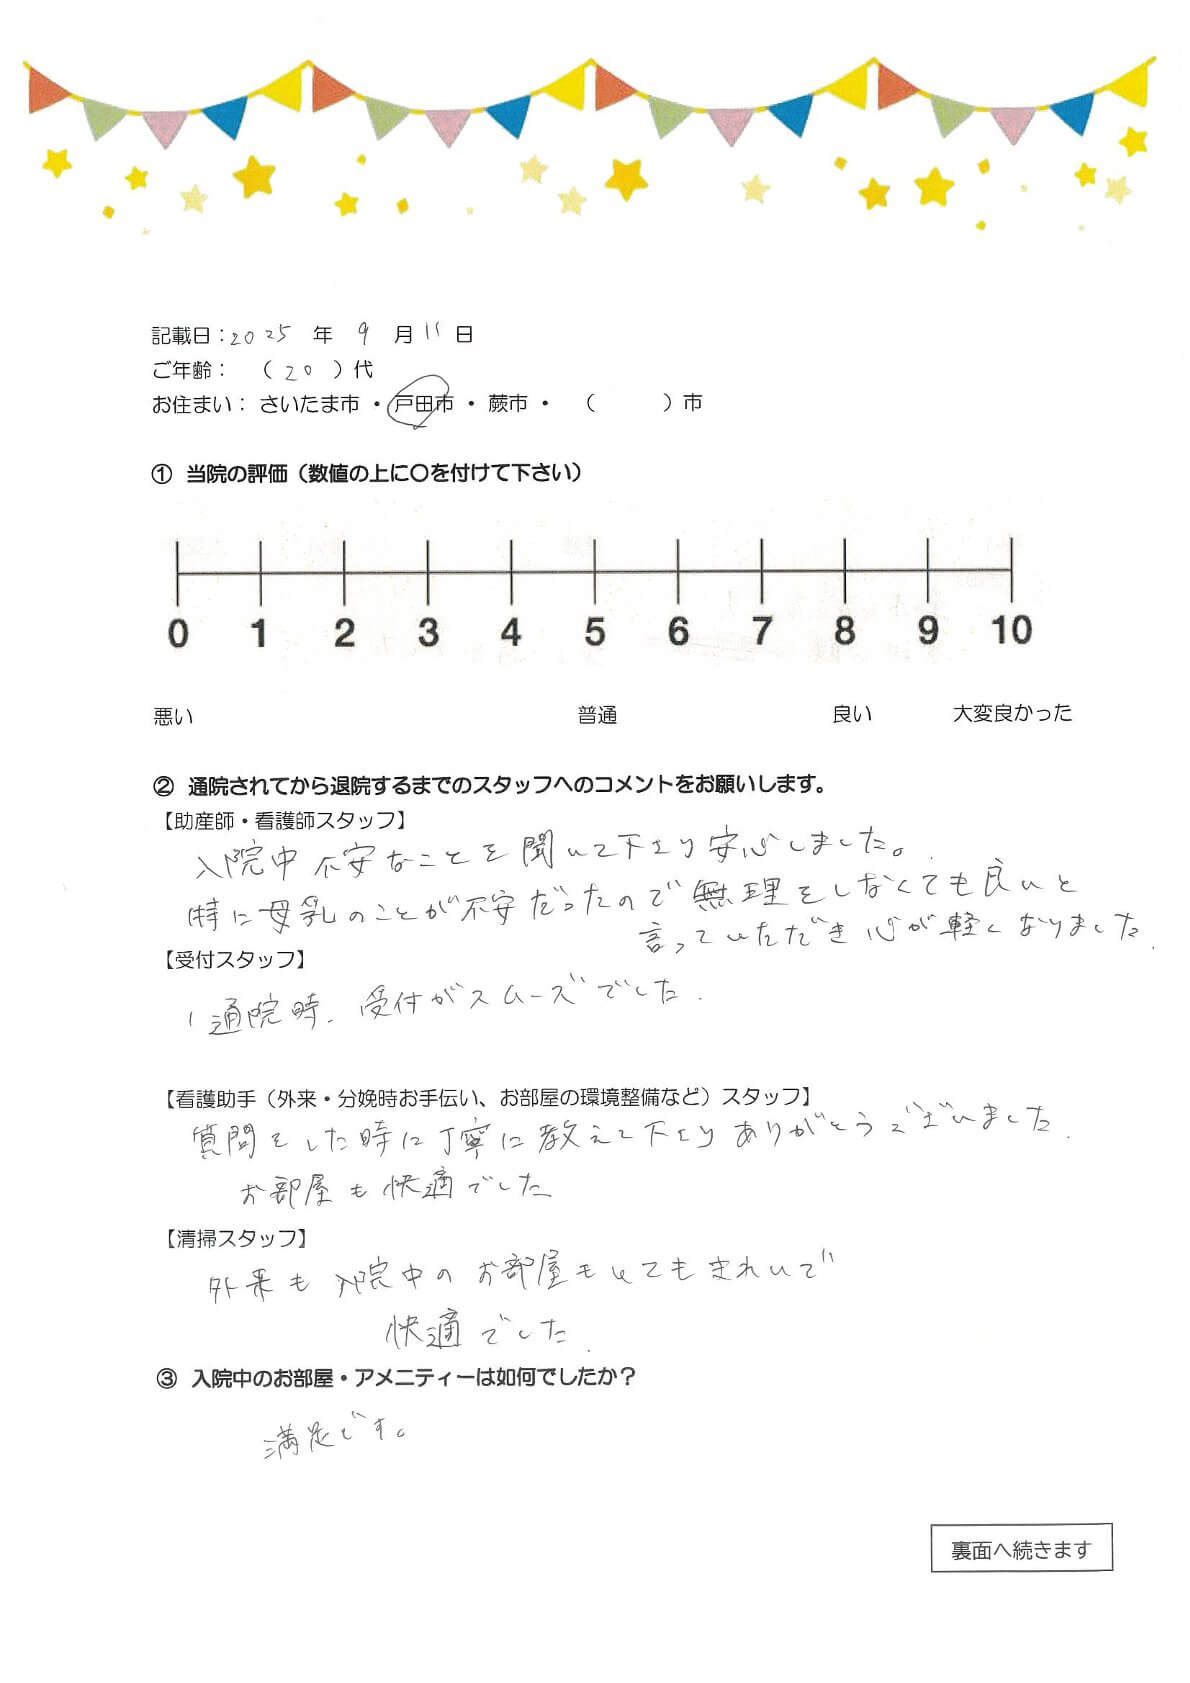 記載日：2025 年 9 月 11 日
ご年齢： （ 20 ）代
お住まい： さいたま市 ・ 戸田市 ・ 蕨市 ・ （ ）市
① 当院の評価（数値の上に〇を付けて下さい）
0 1 2 3 4 5 6 7 8 9 10
悪い 普通 良い 大変良かった
② 通院されてから退院するまでのスタッフへのコメントをお願いします。
【助産師・看護師スタッフ】
入院中不安なことを聞いて下さり安心しました。
特に母乳のことが不安だったので無理をしなくても良いと
言っていただき心が軽くなりました.
【受付スタッフ】
通院時、受付がスムーズでした.
【看護助手（外来・分娩時お手伝い、お部屋の環境整備など）スタッフ】
質問をした時に丁寧に教えて下さりありがとうございました.
お部屋も快適でした
【清掃スタッフ】
外来も入院中のお部屋もとてもきれいで
快適でした.
③ 入院中のお部屋・アメニティーは如何でしたか？
満足です。
裏面へ続きます